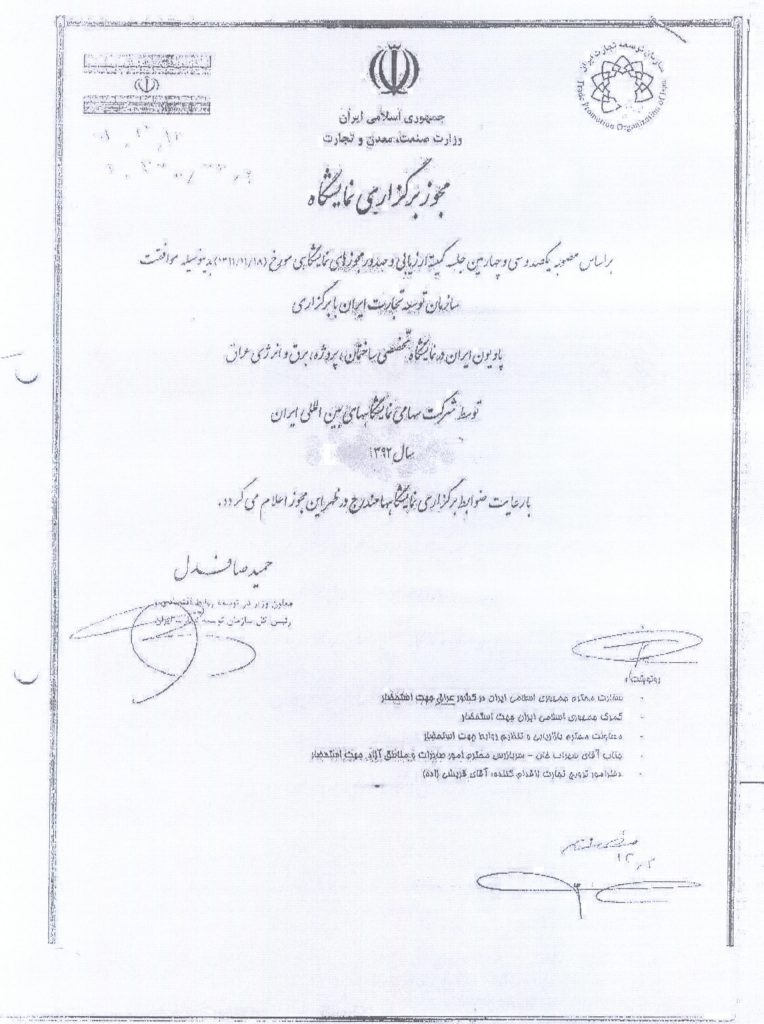 سازمان توسعه تجارت ایران
Trade Promotion Organization of Iran
جمهوری اسلامی ایران
وزارت صنعت، معدن و تجارت
مجوز برگزاری نمایشگاه
براساس مصوبه یکصد و سی و چهارمین جلسه کمیته ارزیابی و صدور مجوزهای نمایشگاهی مورخ (۱۳۹۱/۱۱/۱۸) بدینوسیله موافقت
سازمان توسعه تجارت ایران با برگزاری
پاویون ایران در نمایشگاه تخصصی ساختمان، پروژه، برق و انرژی عراق
توسط شرکت سهامی نمایشگاههای بین المللی ایران
سال ۱۳۹۲
با رعایت ضوابط برگزاری نمایشگاهها مندرج در ظهر این مجوز اعلام می گردد.
حمید صافدل
معاون وزیر در توسعه روابط اقتصادی و
رئیس کل سازمان توسعه تجارت ایران
رونوشت:
- سفارت محترم جمهوری اسلامی ایران در کشور عراق جهت استحضار
- گمرک جمهوری اسلامی ایران جهت استحضار
- معاونت محترم بازاریابی و تنظیم روابط جهت استحضار
- جناب آقای سهراب خان - سربازرس محترم امور صادرات و مناطق آزاد جهت استحضار
- دفتر امور ترویج تجارت (اقدام کننده: آقای قریشی زاده)